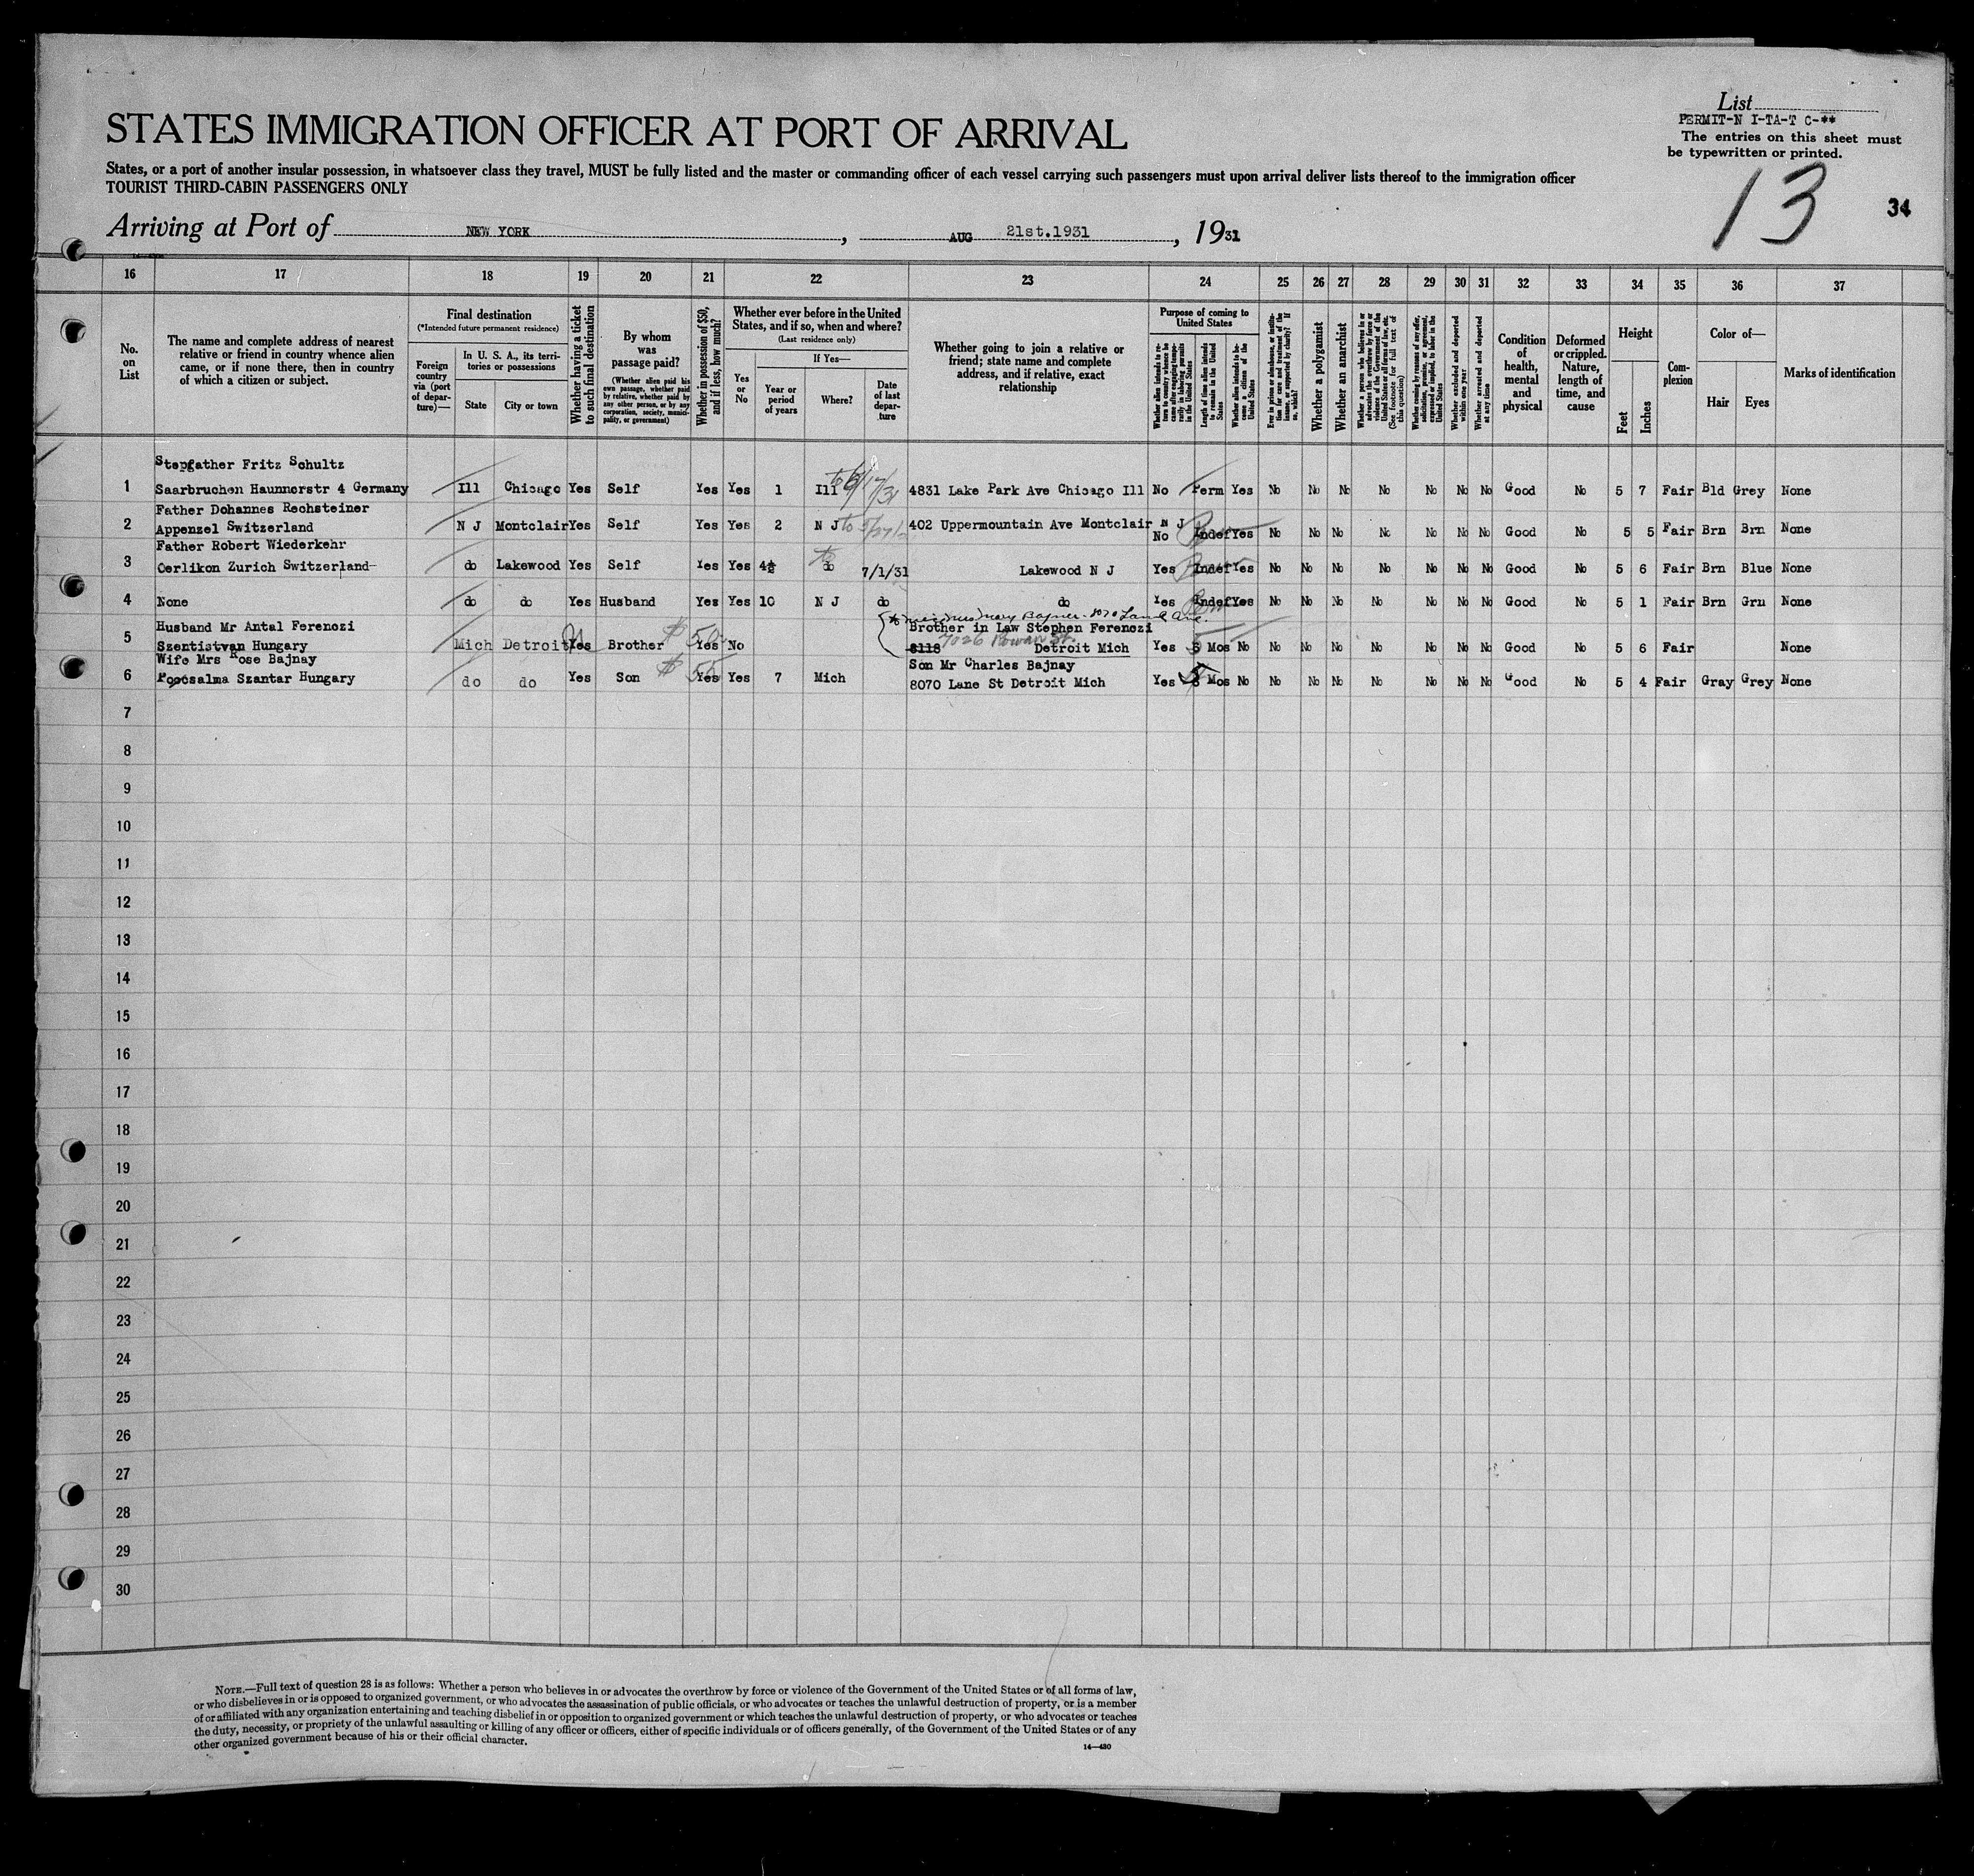 List
PERMIT-N I-TA-T C-**
The entries on this sheet must
be typewritten or printed.
STATES IMMIGRATION OFFICER AT PORT OF ARRIVAL
States, or a port of another insular possession, in whatsoever class they travel, MUST be fully listed and the master or commanding officer of each vessel carrying such passengers must upon arrival deliver lists thereof to the immigration officer
TOURIST THIRD-CABIN PASSENGERS ONLY
13
34
Arriving at Port of NEW YORK, AUG 21st.1931, 1931
16 17 18 19 20 21 22 23 24 25 26 27 28 29 30 31 32 33 34 35 36 37
No. on List
The name and complete address of nearest relative or friend in country whence alien came, or if none there, then in country of which a citizen or subject.
Final destination
(*Intended future permanent residence)
Foreign country via (port of departure)—
In U. S. A., its territories or possessions
State
City or town
Whether having a ticket to such final destination
By whom was passage paid?
(Whether alien paid his own passage, whether paid by relative, whether paid by any other person, or by any corporation, society, municipality, or government)
Whether in possession of $50, and if less, how much?
Whether ever before in the United States, and if so, when and where?
(Last residence only)
Yes or No
If Yes—
Year or period of years
Where?
Date of last departure
Whether going to join a relative or friend; state name and complete address, and if relative, exact relationship
Purpose of coming to United States
Whether alien intends to return to country whence he came after engaging temporarily in laboring pursuits in the United States
Length of time alien intends to remain in the United States
Whether alien intends to become a citizen of the United States
Ever in prison or almshouse, or institution for care and treatment of the insane, or supported by charity? If so, which?
Whether a polygamist
Whether an anarchist
Whether a person who believes in or advocates the overthrow by force or violence of the Government of the United States or all forms of law, etc. (See footnote for full text of this question)
Whether coming by reason of any offer, solicitation, promise, or agreement, expressed or implied, to labor in the United States
Whether excluded and deported within one year
Whether arrested and deported at any time
Condition of health, mental and physical
Deformed or crippled. Nature, length of time, and cause
Height
Feet
Inches
Complexion
Color of—
Hair
Eyes
Marks of identification
Stepfather Fritz Schultz
1 Saarbruchen Haunnerstr 4 Germany Ill Chicago Yes Self Yes Yes 1 Ill to 6/17/31 4831 Lake Park Ave Chicago Ill No Perm Yes No No No No No No No Good No 5 7 Fair Bld Grey None
Father Dohannes Rechsteiner
2 Appenzel Switzerland N J Montclair Yes Self Yes Yes 2 N J to 402 Uppermountain Ave Montclair N J No Indef Yes No No No No No No No Good No 5 5 Fair Brn Brn None
Father Robert Wiederkehr
3 Oerlikon Zurich Switzerland do Lakewood Yes Self Yes Yes 4½ do 7/1/31 Lakewood N J Yes Indef Yes No No No No No No No Good No 5 6 Fair Brn Blue None
4 None do do Yes Husband Yes Yes 10 N J do do Yes Indef Yes No No No No No No No Good No 5 1 Fair Brn Grn None
Husband Mr Antal Ferenczi Brother in Law Stephen Ferenczi
5 Szentistvan Hungary Mich Detroit Yes Brother $50 Yes No 8118 7026 Rowan St. Detroit Mich Yes 5 Mos No No No No No No No No Good No 5 6 Fair None
Wife Mrs Rose Bajnay Son Mr Charles Bajnay
6 Pocsalma Szantar Hungary do do Yes Son $55 Yes Yes 7 Mich 8070 Lane St Detroit Mich Yes 5 Mos No No No No No No No No Good No 5 4 Fair Gray Grey None
7
8
9
10
11
12
13
14
15
16
17
18
19
20
21
22
23
24
25
26
27
28
29
30
NOTE.—Full text of question 28 is as follows: Whether a person who believes in or advocates the overthrow by force or violence of the Government of the United States or of all forms of law,
or who disbelieves in or is opposed to organized government, or who advocates the assassination of public officials, or who advocates or teaches the unlawful destruction of property, or is a member
of or affiliated with any organization entertaining and teaching disbelief in or opposition to organized government or which teaches the unlawful destruction of property, or who advocates or teaches
the duty, necessity, or propriety of the unlawful assaulting or killing of any officer or officers, either of specific individuals or of officers generally, of the Government of the United States or of any
other organized government because of his or their official character.
14—430